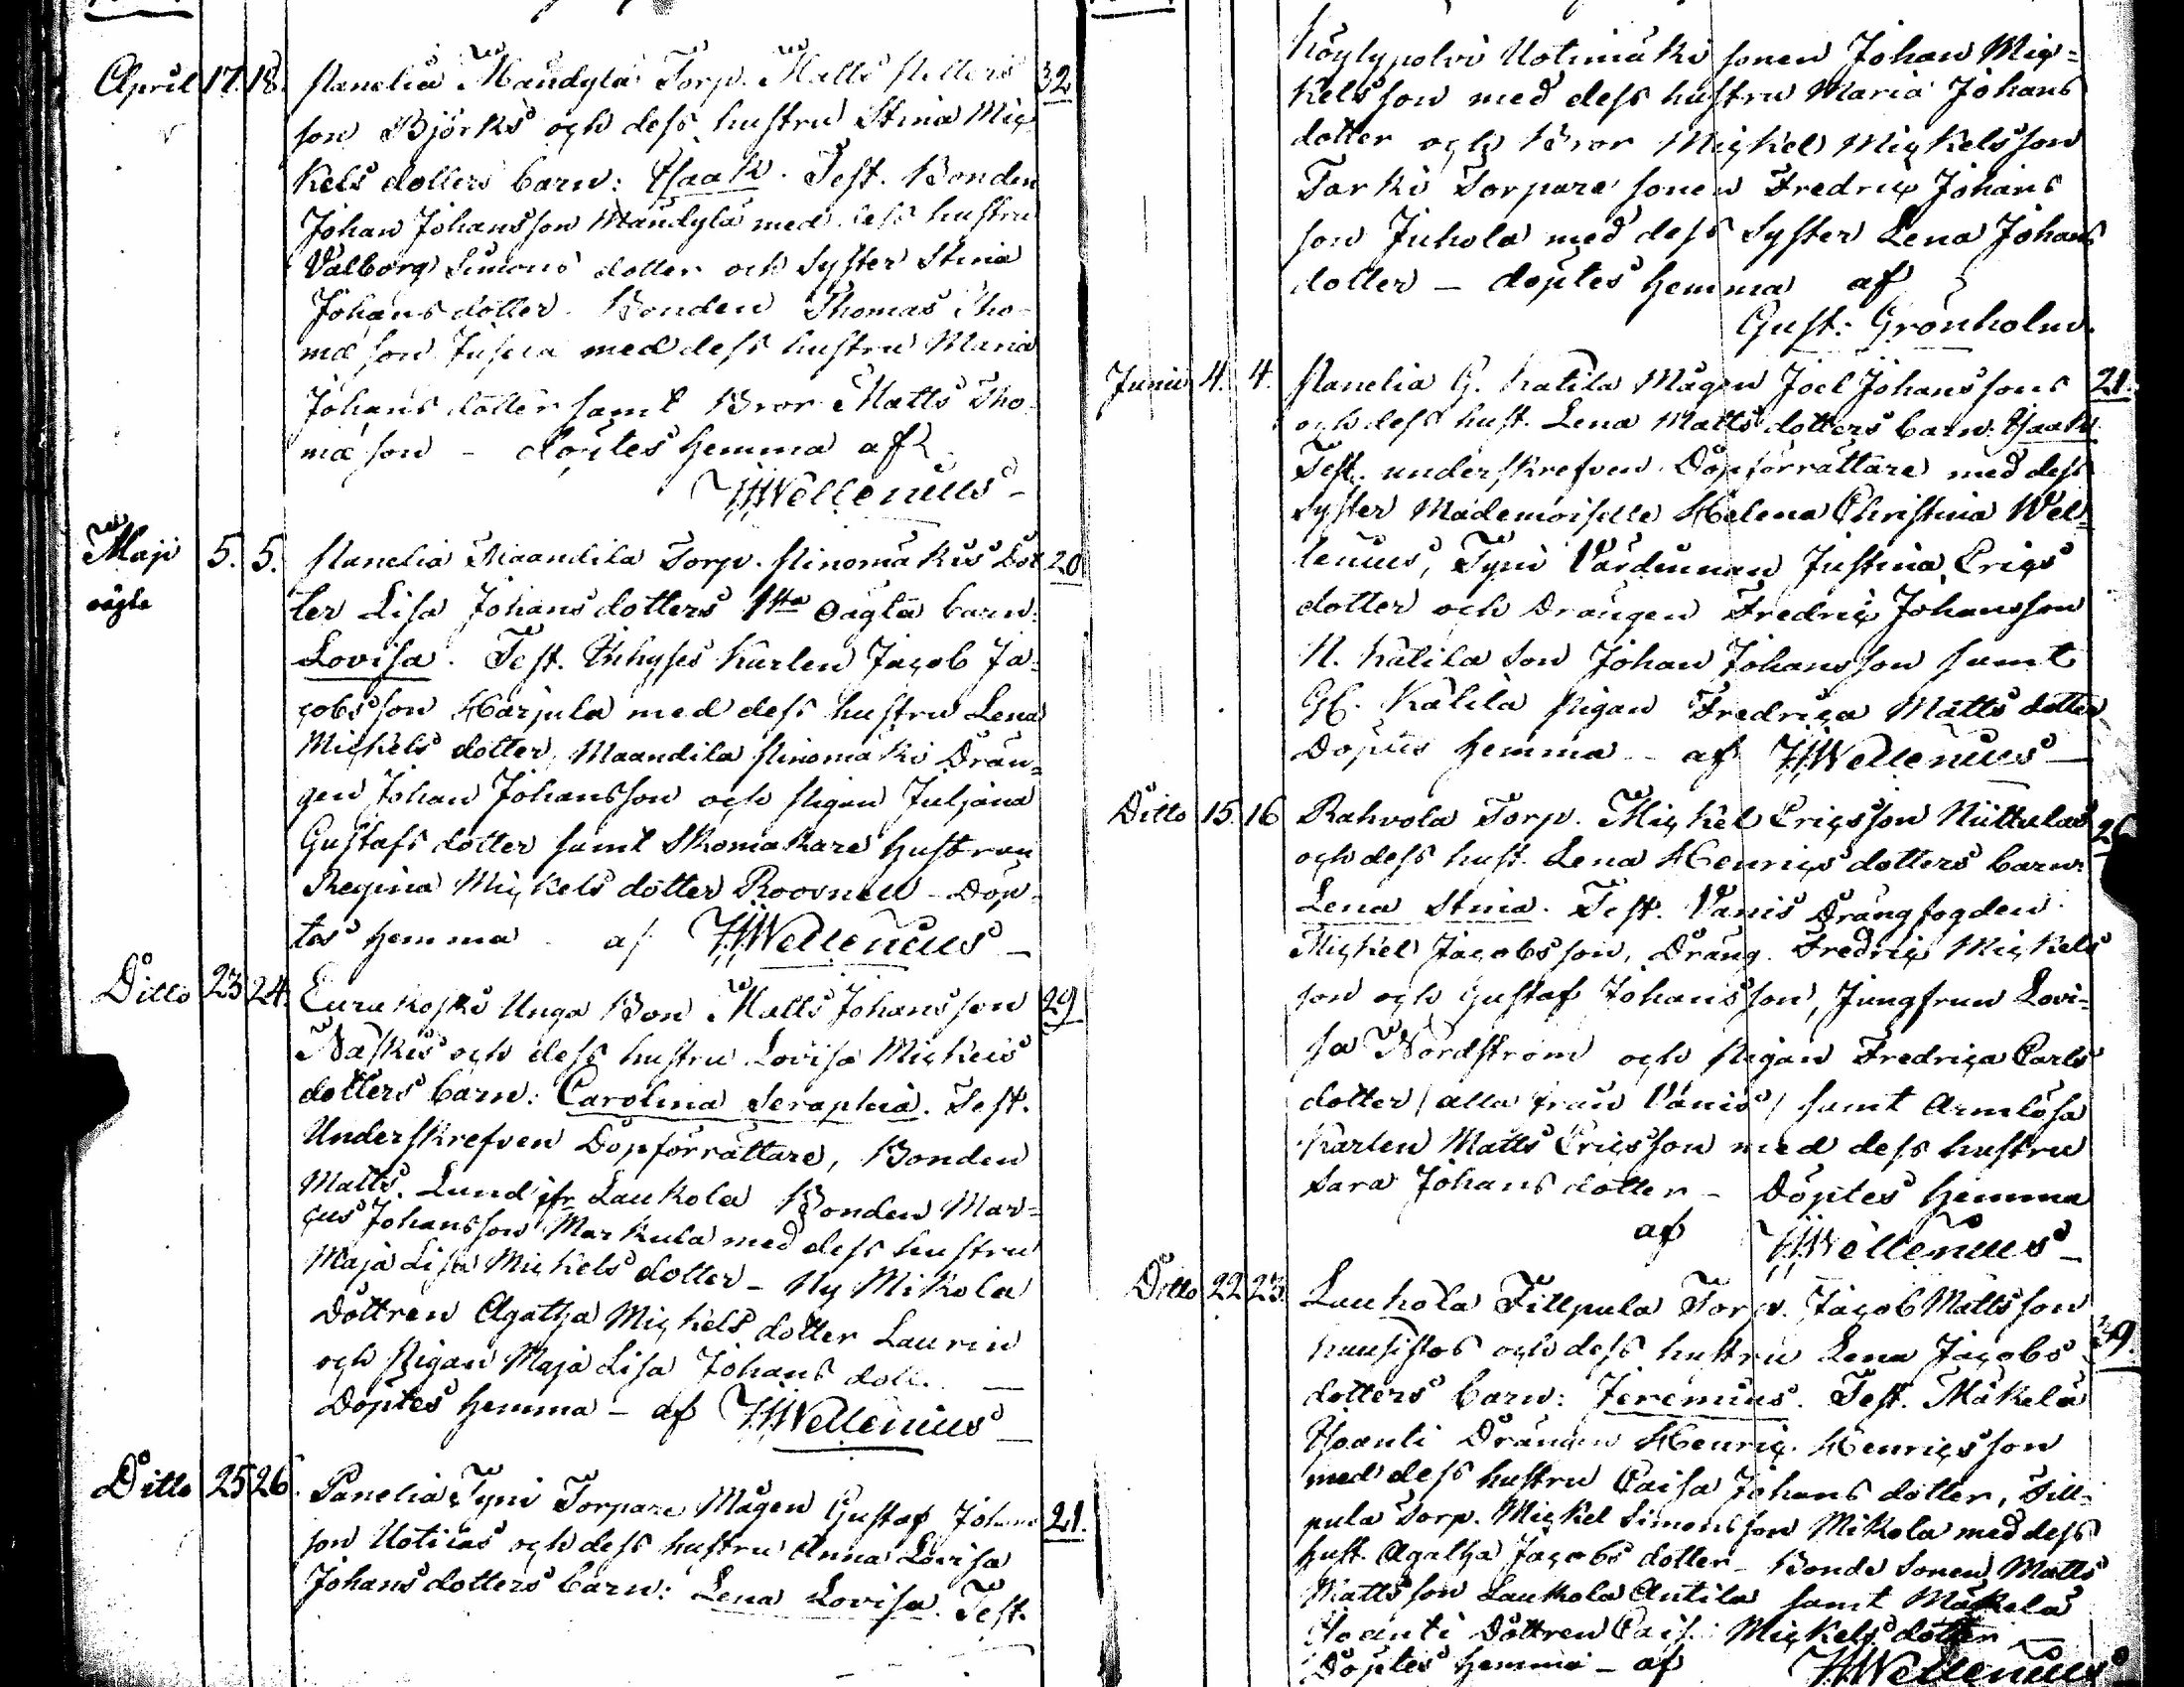 April 17. 18. Panelia Mandyla Torp. Matts Petters 32
son Björks och dess hustru Stina Mic
kels dotters barn: Isaak. Test. Bonden
Johan Johansson Mandyla med dess hustru
Valborg Simons dotter och Syster Stina
Johans dotter. Bonden Thomas Tho-
mæ son med dess hustru Maria
Johans dotter samt Bror Matts Tho-
mæ son - döptes hemma af
Wellenius -
Maji 5. 5. Panelia Maandila Torp. Ninomäkis Dot 20
oägta
ter Lisa Johans dotters 1sta Oägta barn.
Lovisa. Test. Inhyses Karlen Jacob Ja-
cobsson Harjula med dess hustru Lena
Mickels dotter, Maandila Ninomäki Drän-
gen Johan Johansson och Pigan Juljana
Gustafs dotter samt Skomakare hustrun
Regina Mickels dotter - Döp-
tes hemma af Wellenius -
Ditto 23 24. Eurakoski Unga Bon Matts Johansson 29
och dess hustru Lovisa Mickels
dotters barn: Carolina Seraphia. Test.
Underskrefven Döpförrättare, Bonden
Matts. Lund ifr Laukola Bonden Mar-
cus Johansson Markula med dess hustru
Maja Lisa Mickels dotter - Ny Mikola
Dottren Agatha Mickels dotter Laurin
och Pigan Maja Lisa Johans dott. -
Döptes hemma - af Wellenius -
Ditto 25 26. Panelia Tyni Torpare Mågen Gustaf Johans 21.
son Uotilas och dess hustru Anna Lovisa
Johans dotters barn: Lena Lovisa. Test.
Köylypolvi Uotimäki sonen Johan Mic-
kelsson med dess hustru Maria Johans
dotter och Bror Mickel Mickelsson
Tarki Torpare sonen Fredric Johans
son Juhola med dess Syster Lena Johans
dotter - döptes hemma af
Gust: Grönholm.
Junii 4. 4. Panelia G. Katila Mågen Joel Johanssons 21.
och dess hust. Lena Matts dotters barn. Isaak
Test. underskrefven Döpförrättare med dess
Syster Mademoiselle Helena Christina Wel-
lenius, Tyni Värdinnan Justina Erics
dotter och Drängen Fredric Johansson
N. Katila Son Johan Johansson samt
Gl. Katila Pigan Fredrica Matts dotter
Döptes hemma - af Wellenius -
Ditto 15. 16 Rahvola Torp. Mickel Ericsson Niittulas
och dess hust. Lena Henrics dotters barn:
Lena Stina. Test. Vanis Drängfogden
Mickel Jacobsson, Dräng. Fredric Mickels
son och Gustaf Johansson, Jungfrun Lovi-
sa Nordström och Pigan Fredrica Carls
dotter / alla från Vanis / samt Armlösa
Karlen Matts Ericsson med dess hustru
Sara Johans dotter - Döptes hemma
af Wellenius -
Ditto 22 23. Laukola Fillpula Torp. Jacob Mattsson 29.
Kuusistos och dess hustru Lena Jacobs
dotters barn: Jeremias. Test. Mäkelä
Drängen Henric Henricsson
med dess hustru Caisa Johans dotter, Fill-
pula Torp. Mickel Simonsson Mikola med dess
hust. Agatha Jacobs dotter - Bonde Sonen Matts
Mattsson Laukola Antila samt Mäkelä
Dottren Mickels dotter -
Döptes hemma - af Wellenius